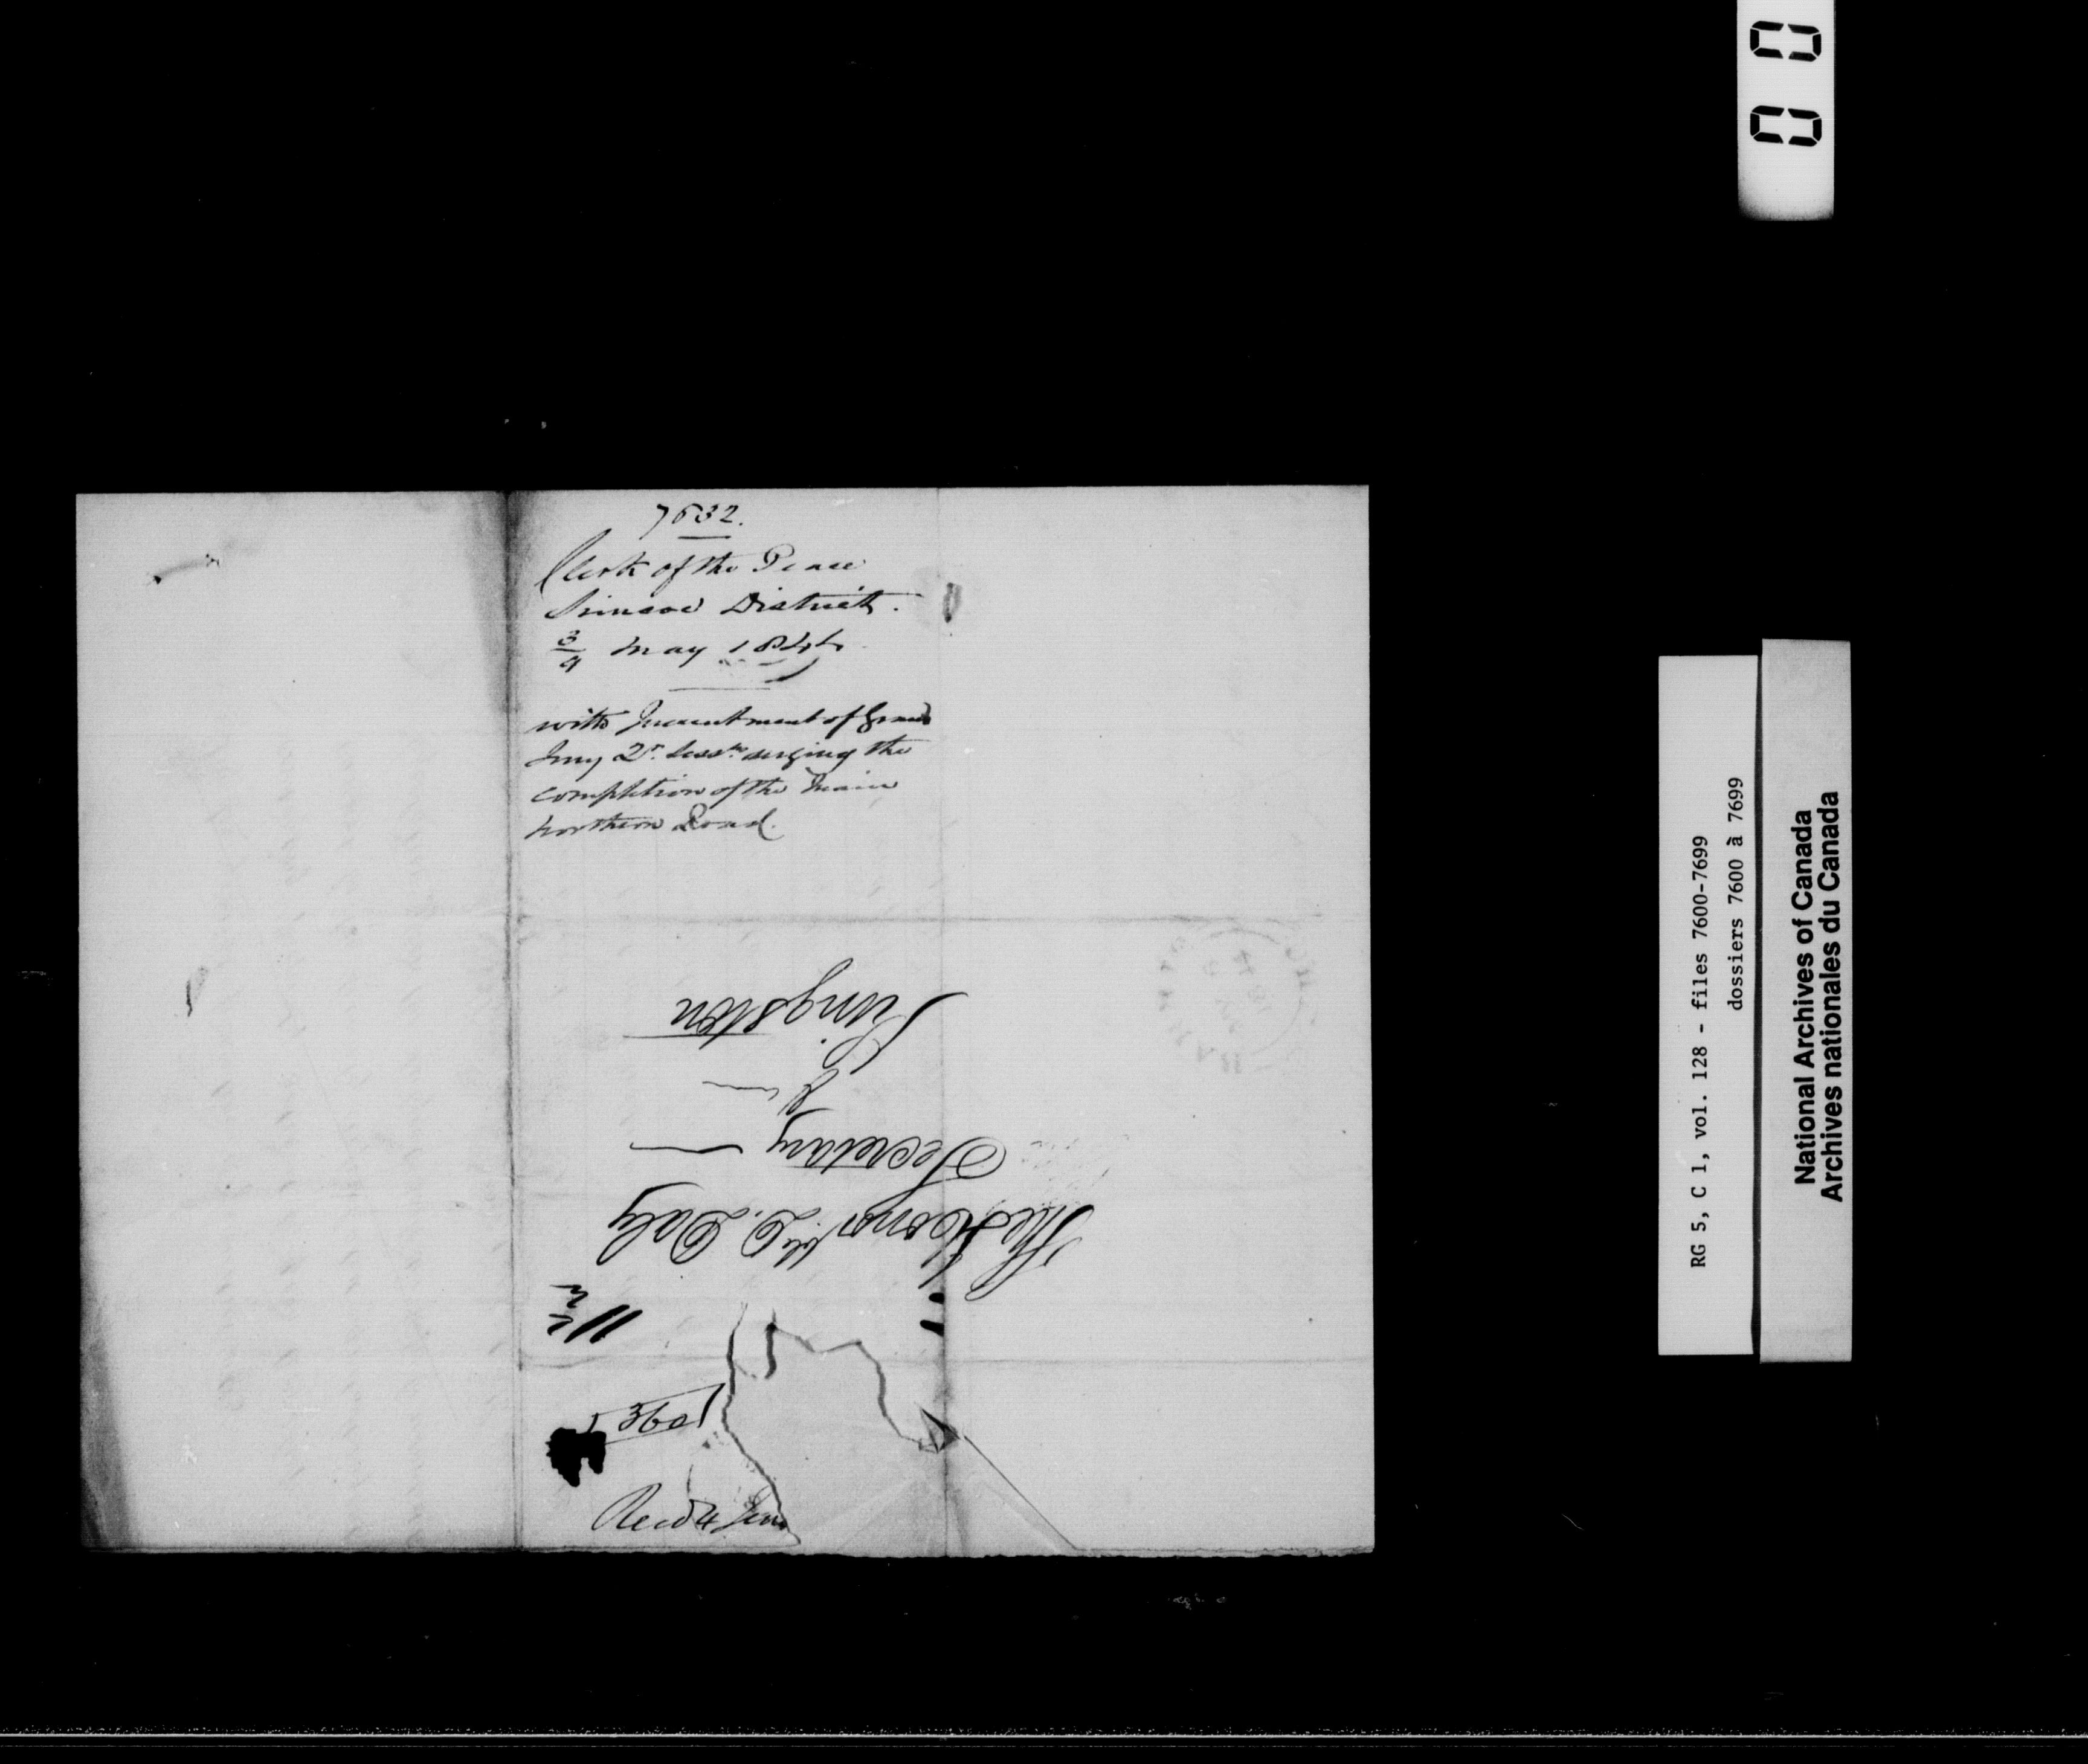 7632.
Clerk of the Peace
Simcoe District.
3/9 May 1844
with Presentment of Grand
Jury 2r. Sessns urging the
completion of the Main
Northern Road.
Kingston
Secretary
The Honorble D. Daly
11½
360
Recd 4 June
RG 5, C 1, vol. 128 - files 7600-7699
dossiers 7600 à 7699
National Archives of Canada
Archives nationales du Canada
00